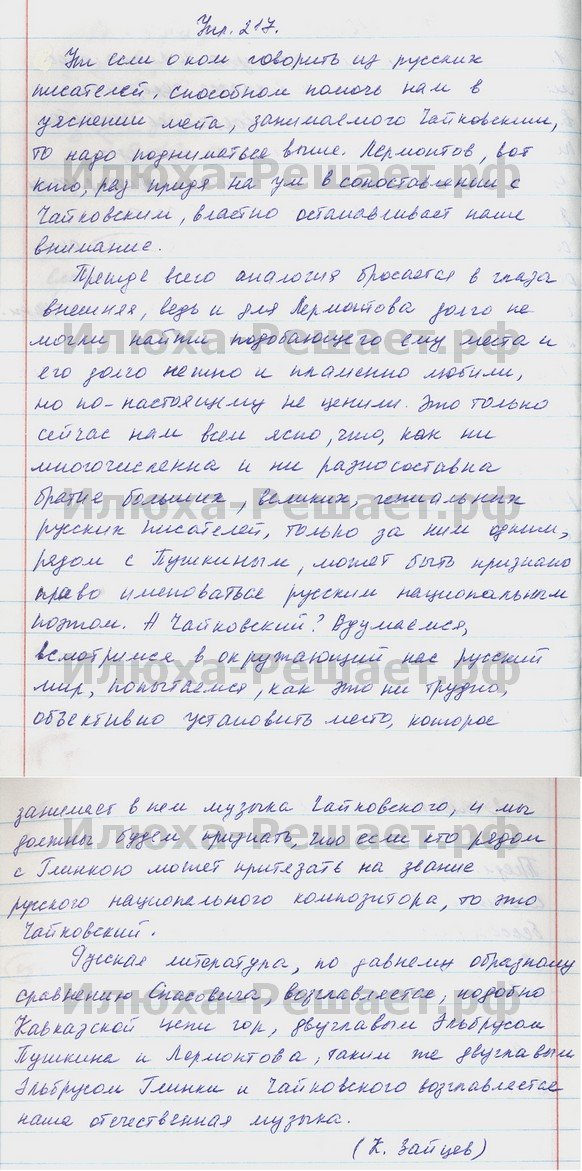 Упр. 217.
Но если о ком говорить из русских
писателей, способном помочь нам в
уяснении места, занимаемого Чайковским,
то надо подниматься выше. Лермонтов, вот
кто, раз придя на ум в сопоставлении с
Чайковским, властно останавливает наше
внимание.
Прежде всего аналогия бросается в глаза
внешняя, ведь и для Лермонтова долго не
могли найти подобающего ему места и
его долго нежно и пламенно любили,
но по-настоящему не ценили. Это только
сейчас нам всем ясно, что, как ни
многочисленна и ни разносоставна
братия больших, великих, гениальных
русских писателей, только за ним одним,
рядом с Пушкиным, может быть признано
право именоваться русским национальным
поэтом. А Чайковский? Вдумаемся,
всмотримся в окружающий нас русский
мир, попытаемся, как это ни трудно,
объективно установить место, которое
занимает в нем музыка Чайковского, и мы
должны будем признать, что если кто рядом
с Глинкою может притязать на звание
русского национального композитора, то это
Чайковский.
Русская литература, по давнему образному
сравнению Спасовича, возглавляется, подобно
Кавказской цепи гор, двуглавым Эльбрусом
Пушкина и Лермонтова, таким же двуглавым
Эльбрусом Глинки и Чайковского возглавляется
наша отечественная музыка.
(К. Зайцев)
Илюха-Решает.рф
Илюха-Решает.рф
Илюха-Решает.рф
Илюха-Решает.рф
Илюха-Решает.рф
Илюха-Решает.рф